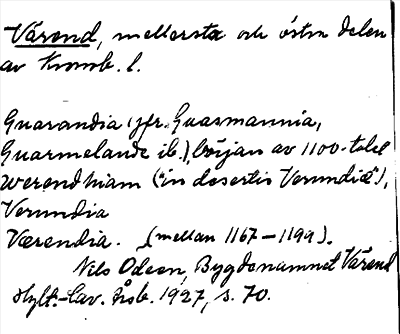 Värend, mellersta och östra delen
av Kronob. l.
Guarandia (jfr. Guasmannia,
Guarmelande ib.), början av 1100-talet
Werendhiam ("in desertis Verundiæ"),
Verundia
Værendia. (mellan 1167–1199).
Nils Odeen, Bygdenamnet Värend
Hylt.-Cav. Årsb. 1927, s. 70.